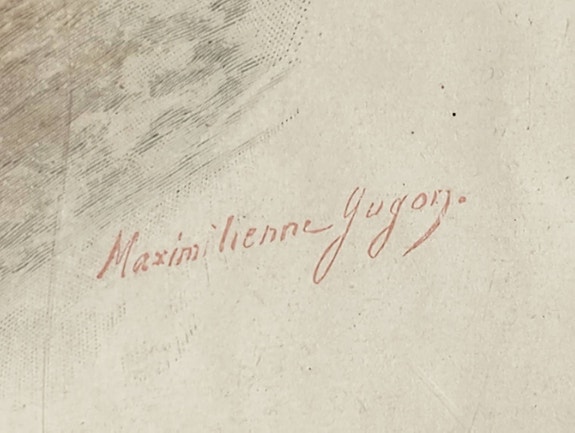 Maximilienne Guyon.